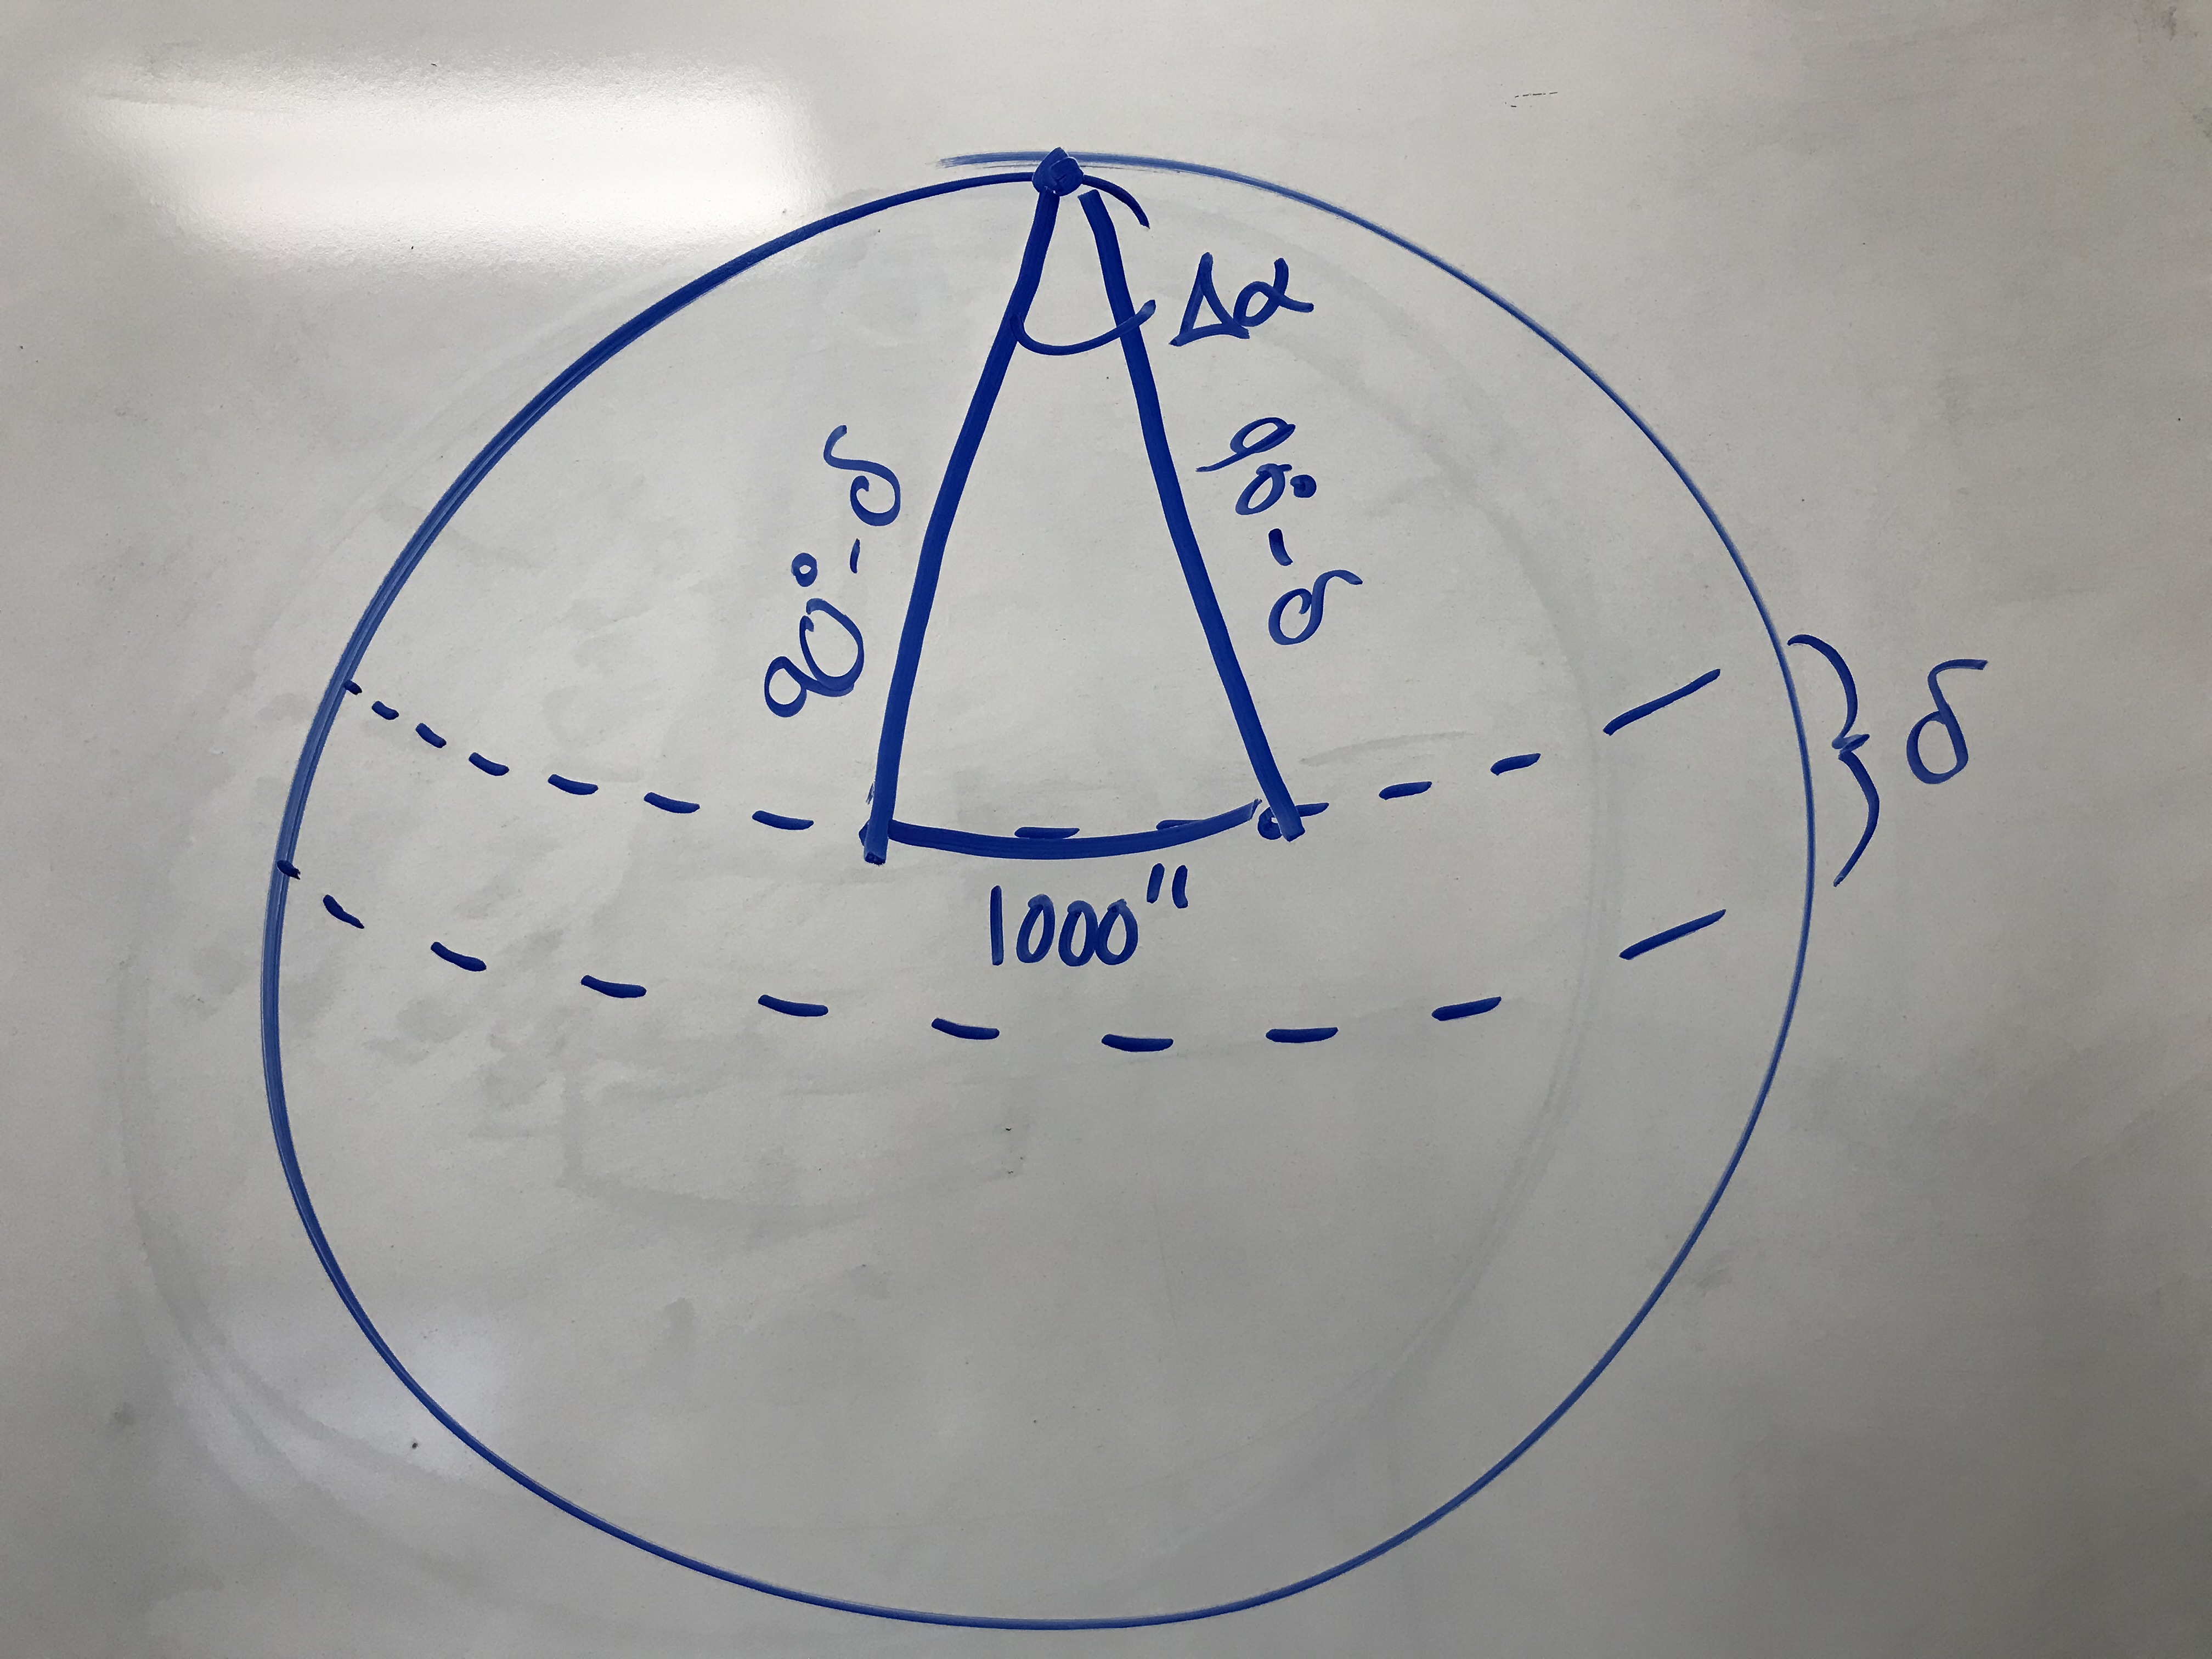 Δα
90°-δ
90°-δ
δ
1000"